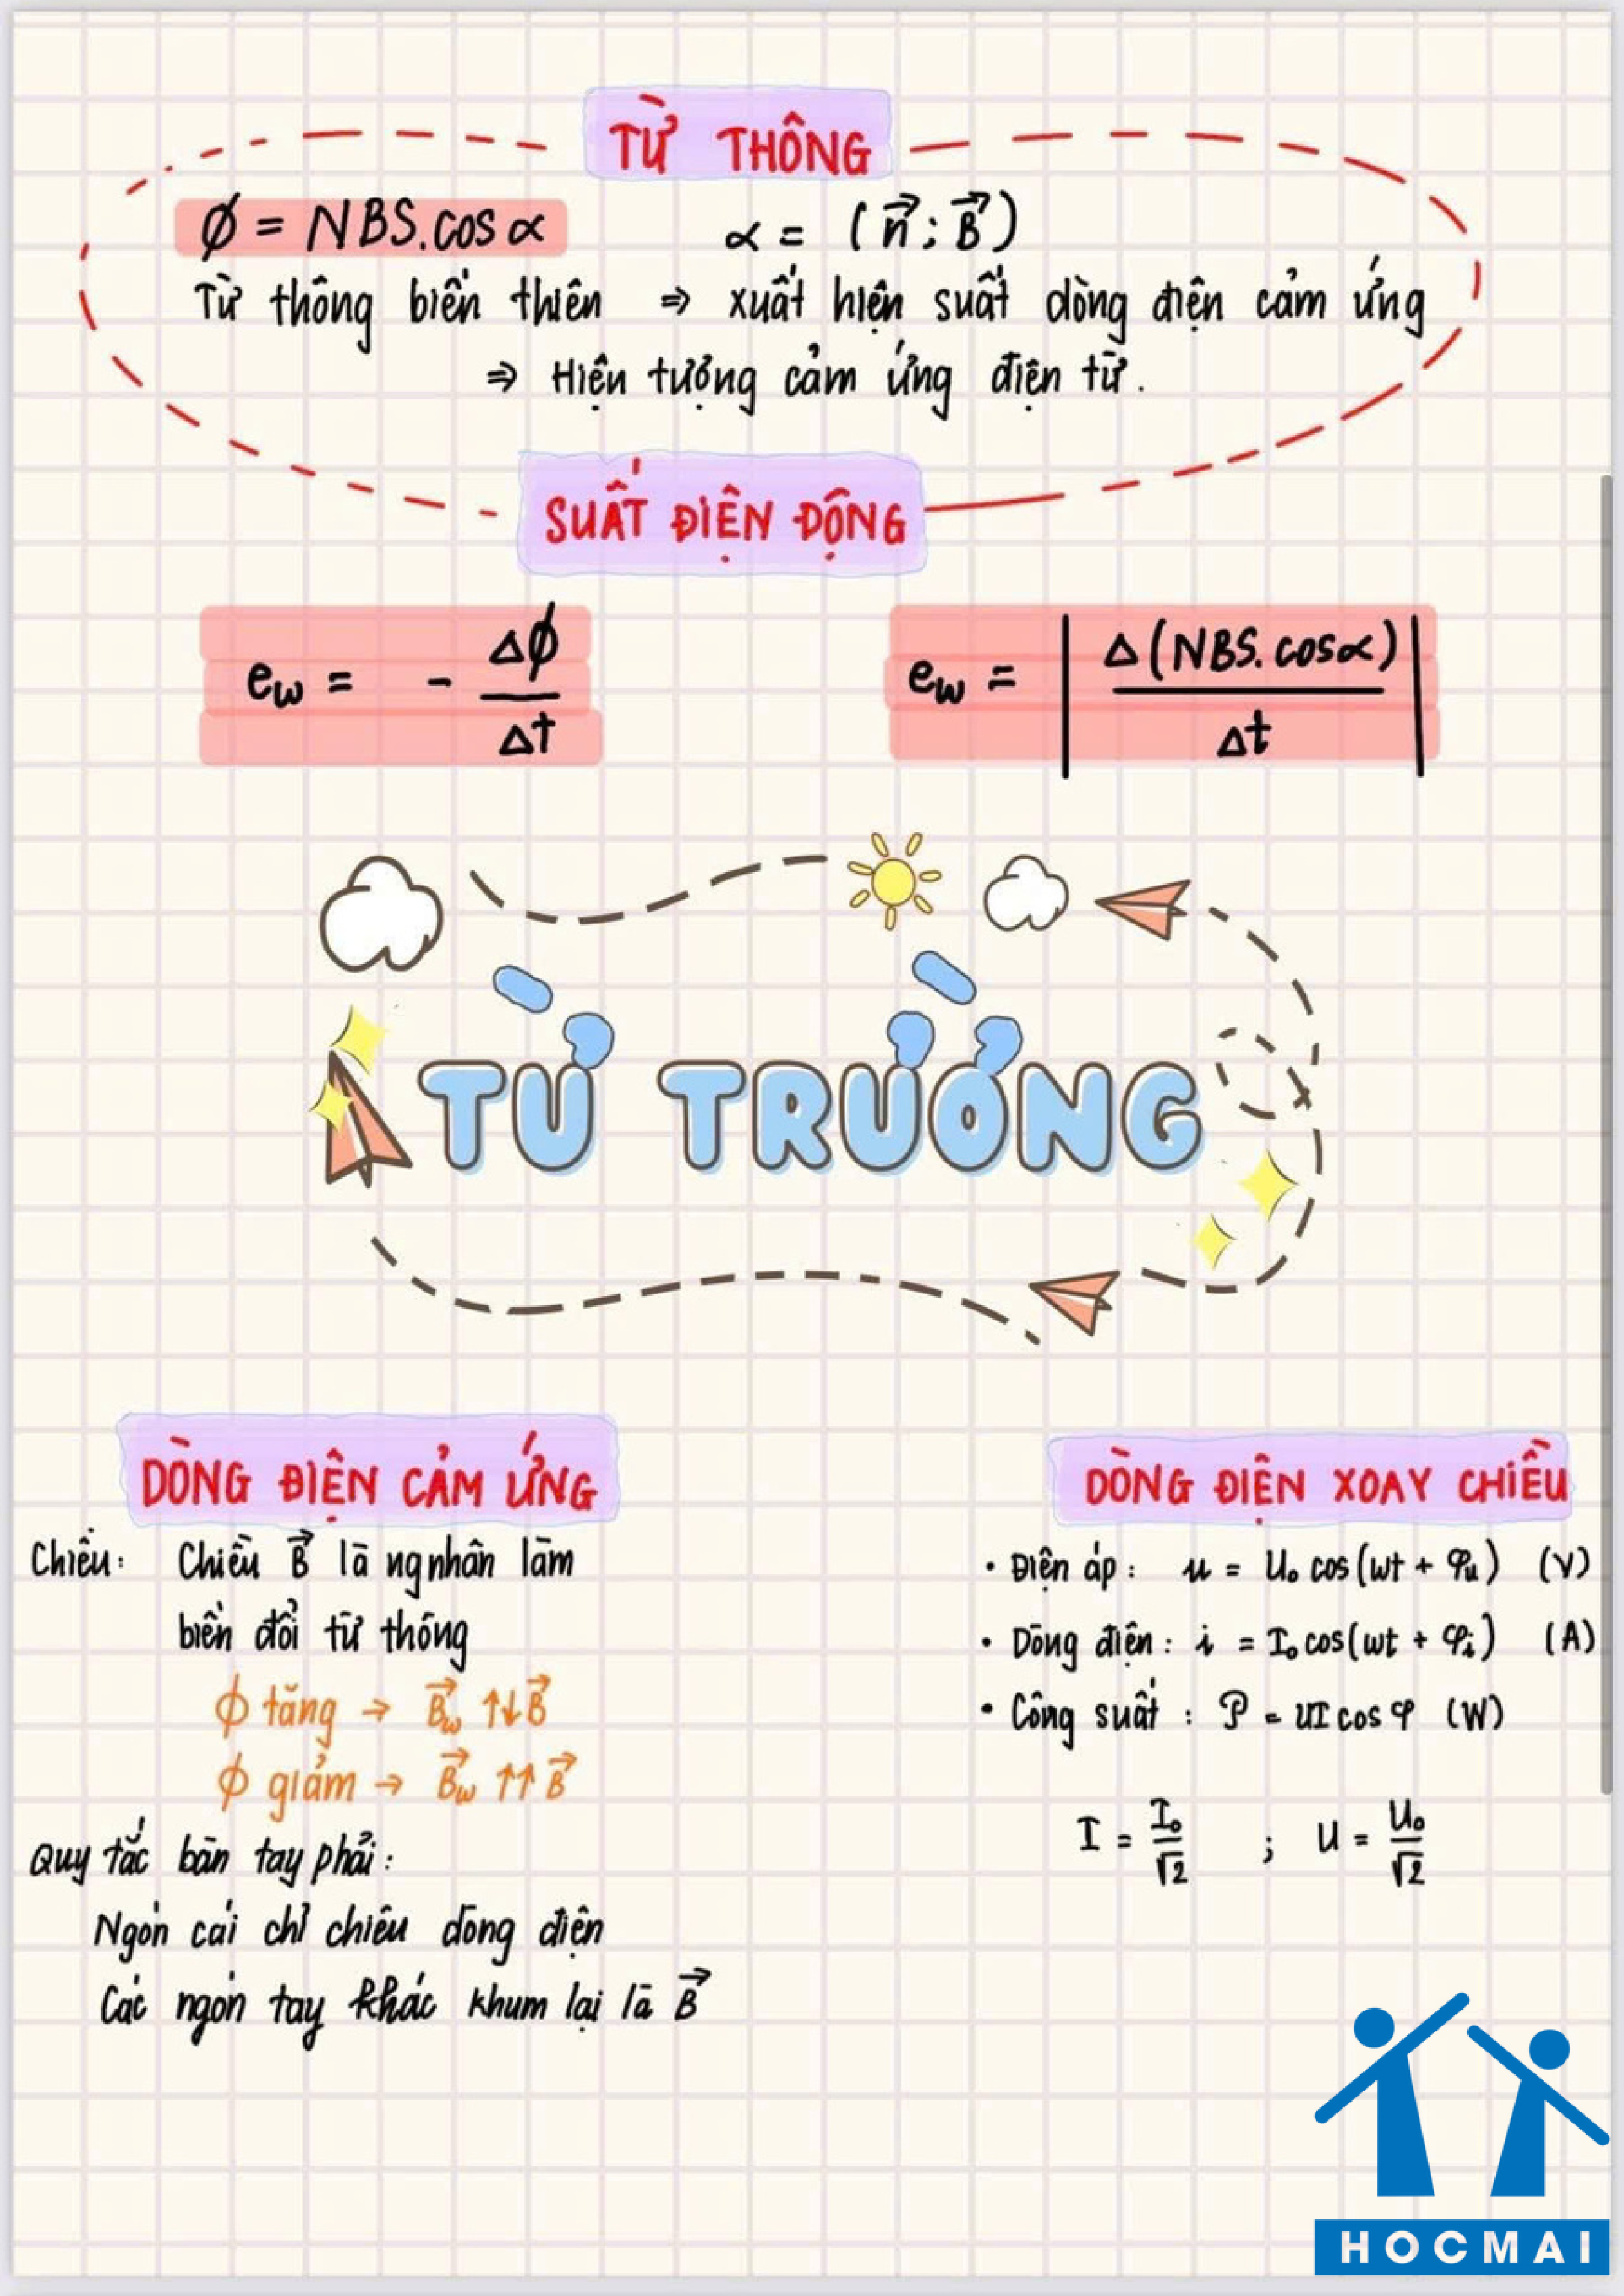 TỪ THÔNG
ϕ = NBS.cos α    α = (n⃗ ; B⃗)
Từ thông biến thiên ⇒ xuất hiện suất dòng điện cảm ứng
⇒ Hiện tượng cảm ứng điện từ.
SUẤT ĐIỆN ĐỘNG
eω = - Δϕ/Δt    eω = |Δ(NBS.cosα)/Δt|
TỪ TRƯỜNG
DÒNG ĐIỆN CẢM ỨNG
Chiều: Chiều B⃗ là ng nhân làm
biến đổi từ thông
ϕ tăng → B⃗ω ↑↓ B⃗
ϕ giảm → B⃗ω ↑↑ B⃗
Quy tắc bàn tay phải:
Ngón cái chỉ chiều dòng điện
Các ngón tay khác khum lại là B⃗
DÒNG ĐIỆN XOAY CHIỀU
• Điện áp: u = U₀ cos(ωt + φu) (V)
• Dòng điện: i = I₀ cos(ωt + φi) (A)
• Công suất: P = UI cos φ (W)
I = I₀/√2 ; U = U₀/√2
HOCMAI